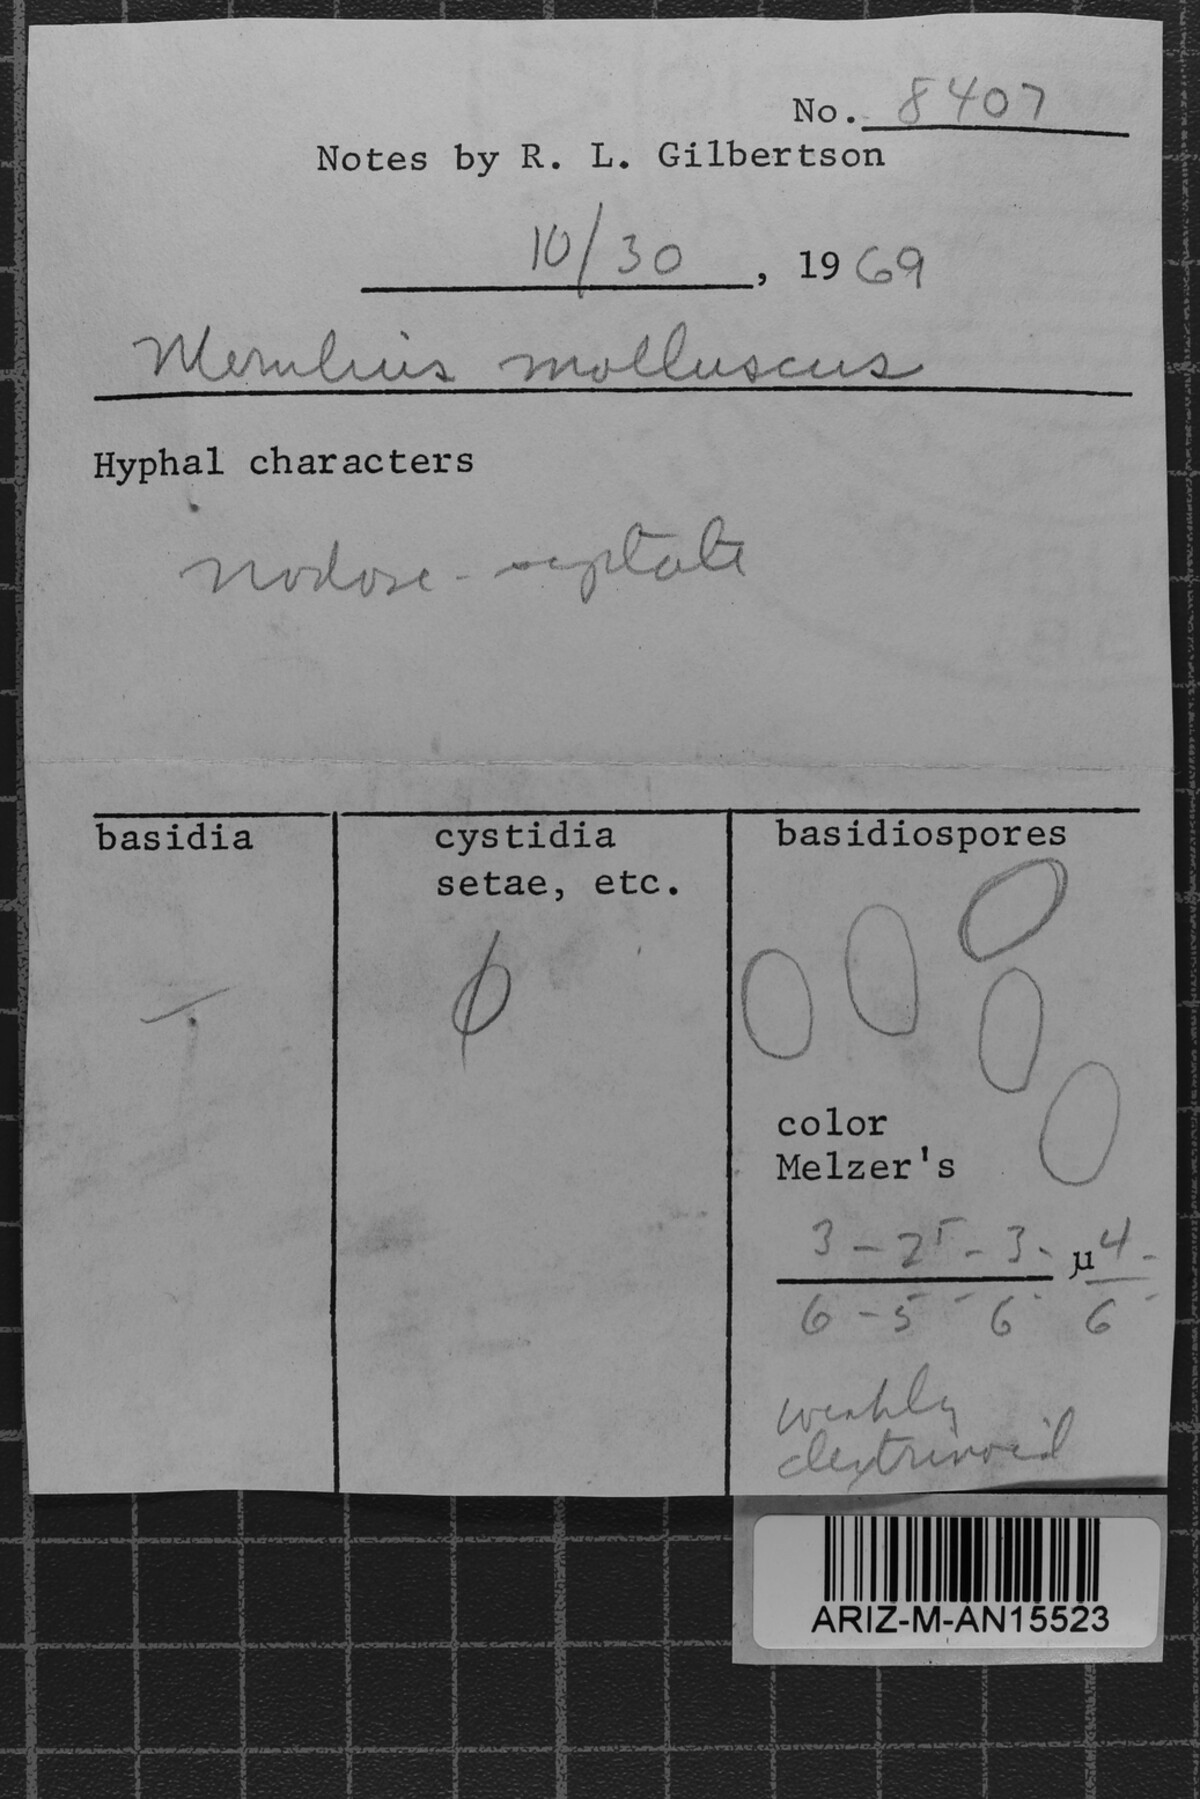 No. 8407
Notes by R. L. Gilbertson
10/30, 1969
Merulius molluscus
Hyphal characters
nodose-septate
basidia
cystidia
setae, etc.
φ
basidiospores
color
Melzer's
3 - 2⁵ - 3 - µ 4 -
6 - 5 - 6 6 -
weakly
dextrinoid
ARIZ-M-AN15523